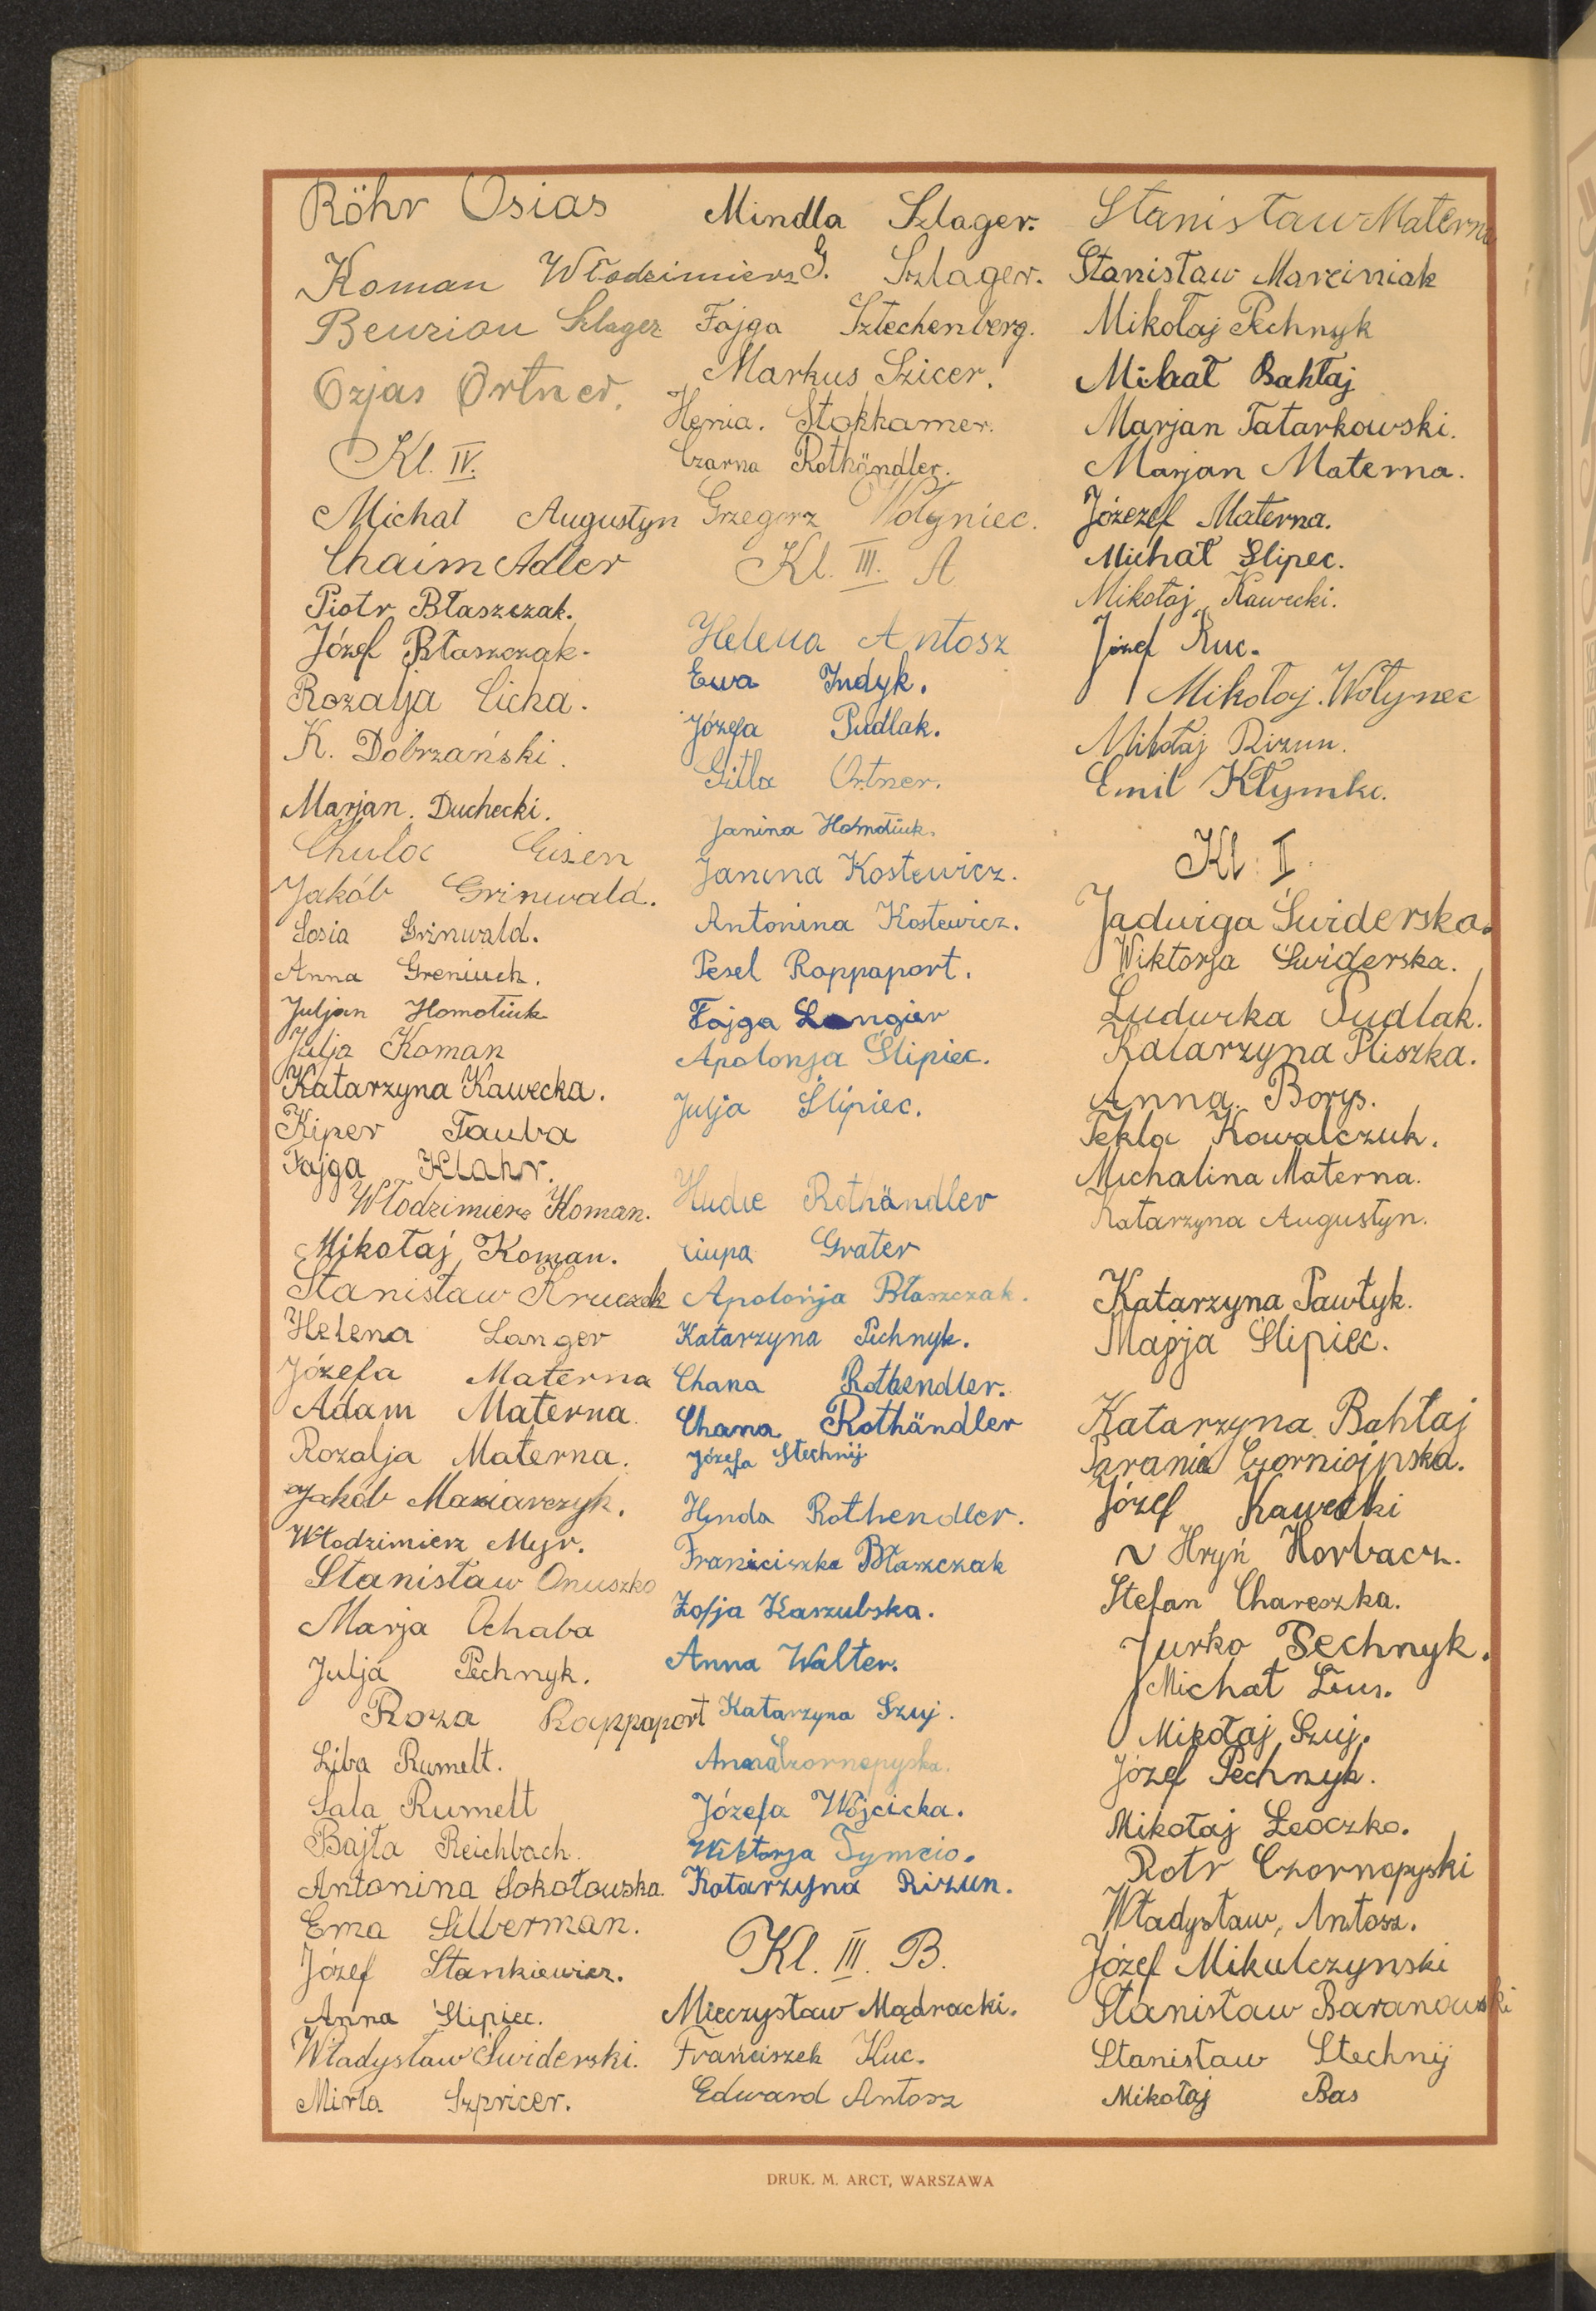 Röhr Osias
Koman Włodzimierz
Benzion Szlager
Ozjas Ortner.
Kl. IV.
Michał Augustyn
Chaim Adler
Piotr Błaszczak.
Józef Błaszczak.
Rozalja Cicha.
K. Dobrzański.
Marjan. Duchecki.
Eisen
Jakób Grinwald.
Sosia Grinwald.
Anna Greniuch.
Juljan Homotiuk
Julja Koman
Katarzyna Kawecka.
Kiper Tauba
Fajga Klahr.
Włodzimierz Koman.
Mikołaj Koman.
Stanisław Kruczek
Helena Langer
Józefa Materna
Adam Materna.
Rozalja Materna.
Jakób Maziarczyk.
Włodzimierz Myr.
Stanisław Onuszko
Marja Ochaba
Julja Pechnyk.
Roza Rappaport
Liba Rumelt.
Sala Rumelt
Bajla Reichbach.
Antonina Sokołowska.
Ema Silberman.
Józef Stankiewicz.
Anna Ślipiec.
Władysław Świderski.
Mirla Szpricer.
Mindla Szlager.
G. Szlager.
Fajga Sztechenberg.
Markus Szicer.
Henia. Stokhamer.
Czarna Rothändler.
Grzegorz Wołyniec.
Kl. III. A
Helena Antosz
Ewa Indyk.
Józefa Pudlak.
Gitla Ortner.
Janina Homotiuk.
Janina Kostewicz.
Antonina Kostewicz.
Pesel Rappaport.
Fajga Langier
Apolonja Ślipiec.
Julja Ślipiec.
Rothändler
Ciupa Grater
Apolonja Błaszczak.
Katarzyna Pechnyk.
Chana Rothendler.
Chana Rothändler
Józefa Stechnij
Henda Rothendler.
Franiciszka Błaszczak
Zofja Kaszubska.
Anna Walter.
Katarzyna Szuj.
Anna Czornopyska.
Józefa Wójcicka.
Wiktorja Tymcio.
Katarzyna Rizun.
Kl. III. B.
Mieczysław Mądracki.
Franciszek Kuc.
Edward Antosz
Stanisław Materna
Stanisław Marciniak
Mikołaj Pechnyk
Michał Bahłaj
Marjan Tatarkowski.
Marjan Materna.
Józezef Materna.
Michał Slipec.
Mikołaj Kawecki.
Józef Kuc.
Mikołaj. Wołynec
Mikołaj Rizun.
Emil Kłymko.
Kl. I.
Jadwiga Świderska.
Wiktorja Świderska.
Ludwika Pudlak.
Katarzyna Pliszka.
Anna. Borys.
Tekla Kowalczuk.
Michalina Materna.
Katarzyna Augustyn.
Katarzyna Pawłyk.
Marja Ślipiec.
Katarzyna Bahłaj
Parania Czorniojpska.
Józef Kawecki
Hryń Horbacz.
Stefan Chareszka.
Jurko Pechnyk.
Michał
Mikołaj Szuj.
Józef Pechnyk.
Mikołaj
Piotr Czornopyski
Władysław, Antosz.
Józef Mikulczynski
Stanisław Baranowski
Stanisław Stechnij
Mikołaj Bas
DRUK. M. ARCT, WARSZAWA